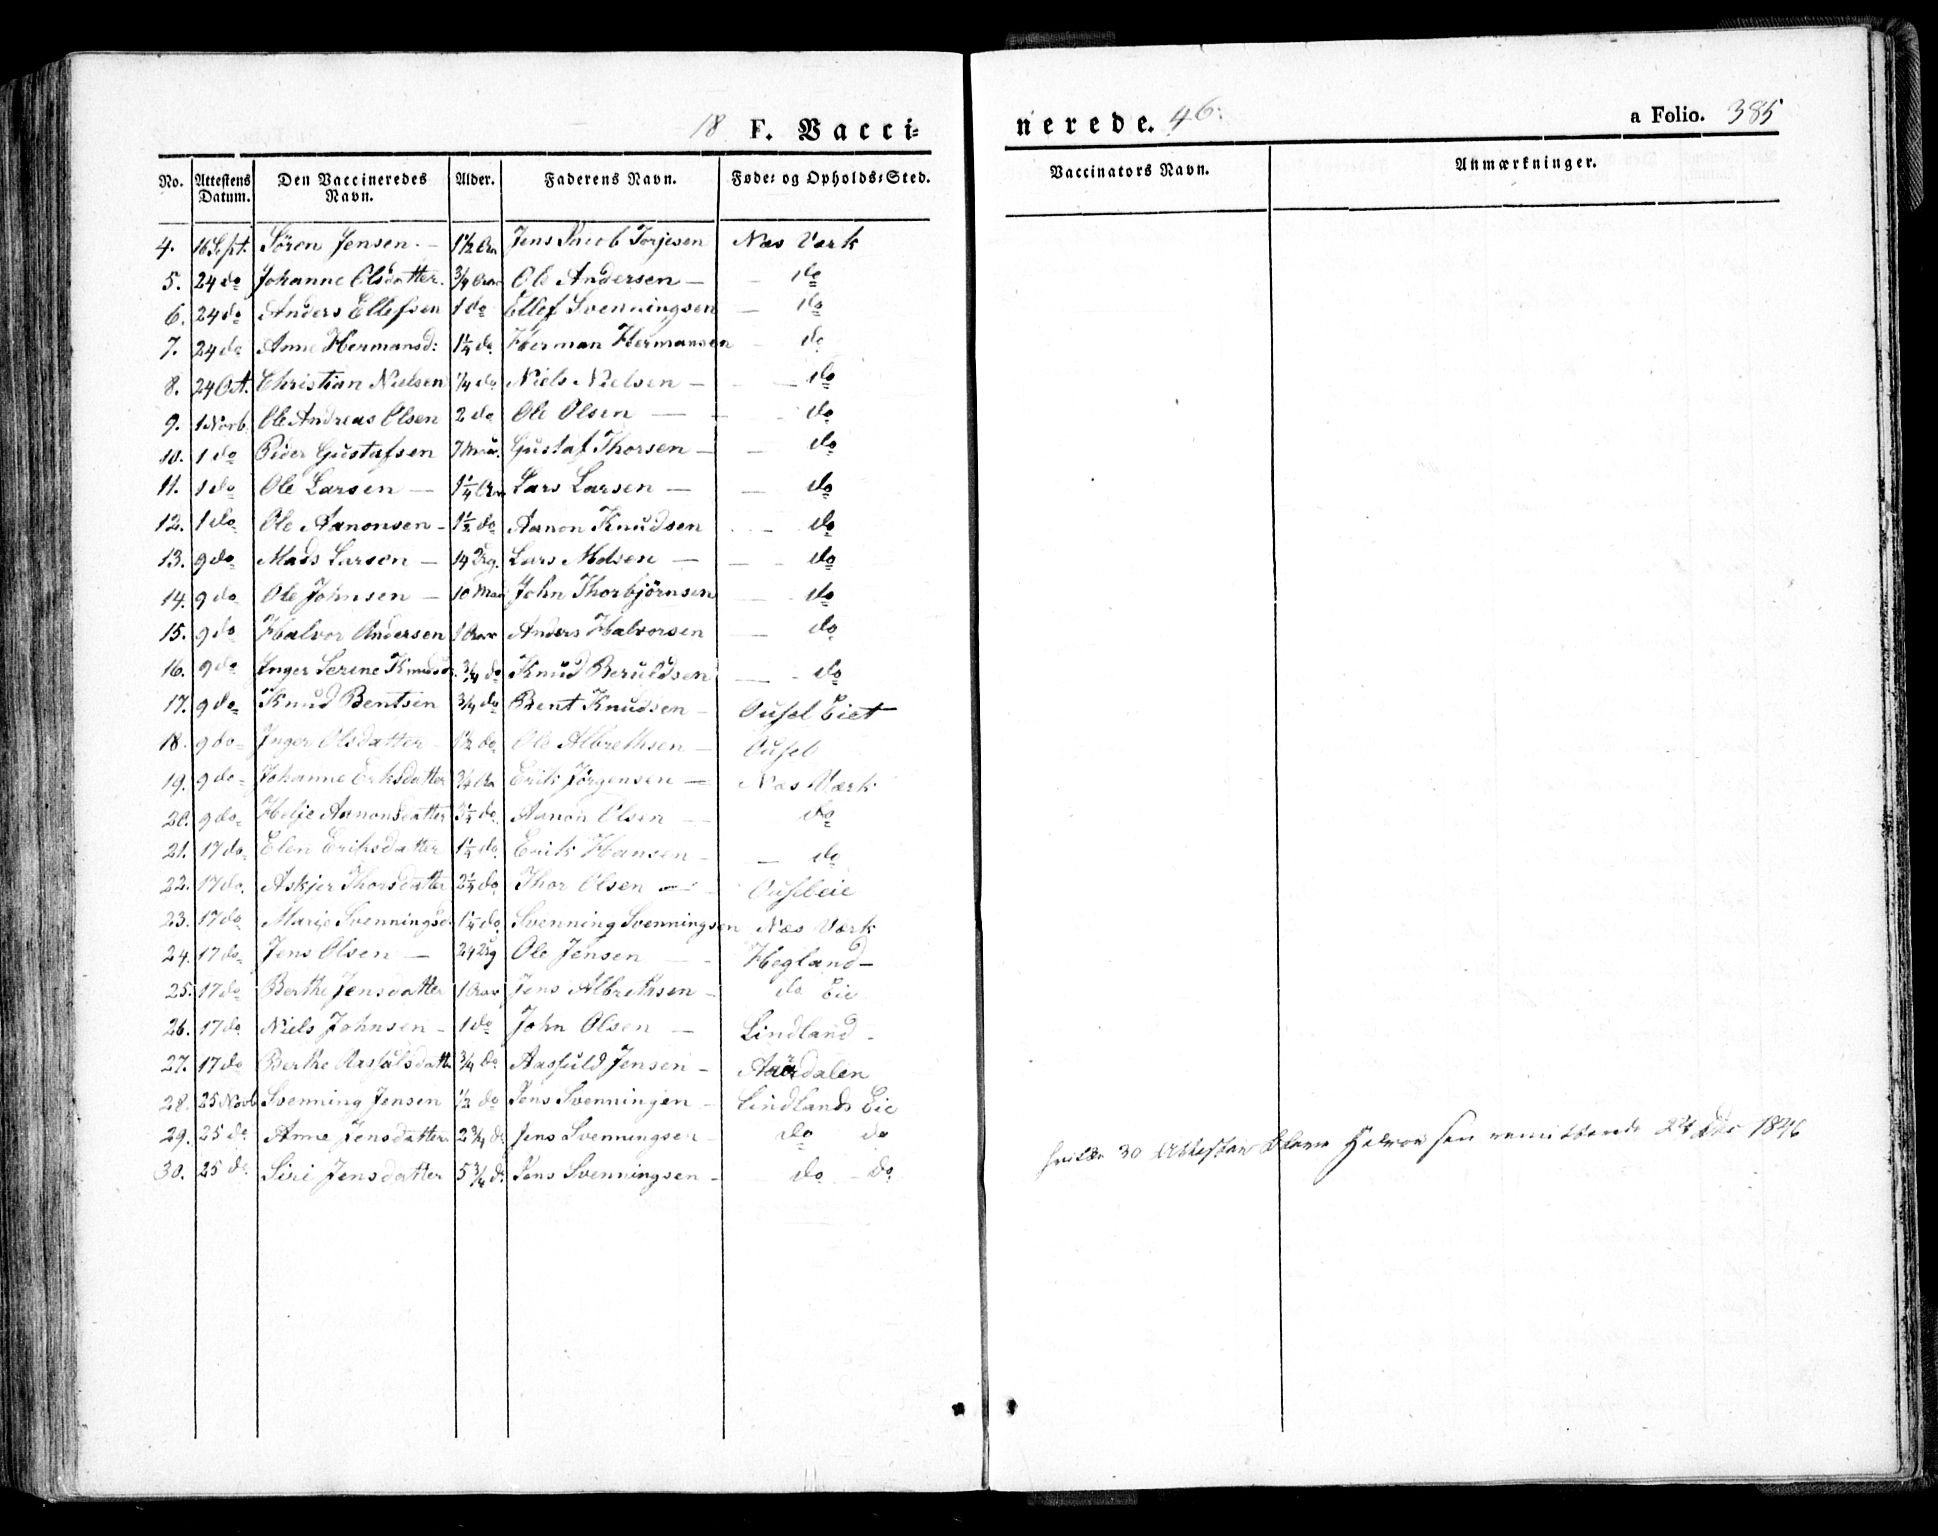 18 F. Vacci=
nerede. 46.
a Folio. 385
No. Attestens Datum. Den Vaccineredes Navn. Alder. Faderens Navn. Føde= og Opholds=Sted. Vaccinators Navn. Anmærkninger.
4. 16 Sept. Sören Jensen. 1½ Aar Jens Jacob Torjesen Næs Værk
5. 24 do Johanne Olsdatter. ¾ Aar Ole Andersen — do
6. 24 do Anders Ellefsen 1 do Ellef Svenningsen — do
7. 24 do Anne Hermansd: 1¼ do Herman Hermansen do
8. 24 Oct. Christian Nielsen ¼ do Niels Nielsen — do
9. 1 Novb. Ole Andreas Olsen 2 do Ole Olsen — do
10. 1 do Peder Gustafsen 7 Gustaf Thorsen — do
11. 1 do Ole Larsen — 1¼ Aar Lars Larsen — do
12. 1 do Ole Aanonsen - 1½ do Aanon Knudsen do
13. 9 do Mads Larsen — 14 Lars — do
14. 9 do Ole Johnsen — 10 John Thorbjörnsen do
15. 9 do Halvor Andersen 1 Aar Anders Halvorsen do
16. 9 do Inger Serine Knudsd. ¾ do Knud Beruldsen do
17. 9 do Knud Bentsen ¾ do Bent Knudsen - Ousel Eiet
18. 9 do Inger Olsdatter 1½ do Ole Albrethsen — Ousel
19. 9 do Johanne Eriksdatter ¾ Aar Erik Jörgensen — Næs Værk
20. 9 do Helje Aanonsdatter 3¼ do Aanon Olsen — do
21. 17 do Elen Eriksdatter 1¼ do Erik Hansen - do
22. 17 do Askjer Thorsdatter 2¼ do Thor Olsen — Ouseleie
23. 17 do Marie Svenningsd. 1¼ do Svenning Svenningsen Næs Værk
24. 17 do Jens Olsen — 24 Ole Jensen — Hegland
25. 17 do Berthe Jensdatter 1 Aar Jens Albrethsen - do Eie
26. 17 do Niels Johnsen - 1 do John Olsen — Lindland
27. 17 do Berthe Aasulsdatt ¾ do Aasuld Jensen -
28. 25 Novb Svenning Jensen ½ do Jens Svenningen - Lindlands Eie
29. 25 do Anne Jensdatter 2¾ do Jens Svenningsen - do do
30. 25 do Siri Jensdatter 5¾ do Jens Svenningsen - do do
30 Attester 24 1846